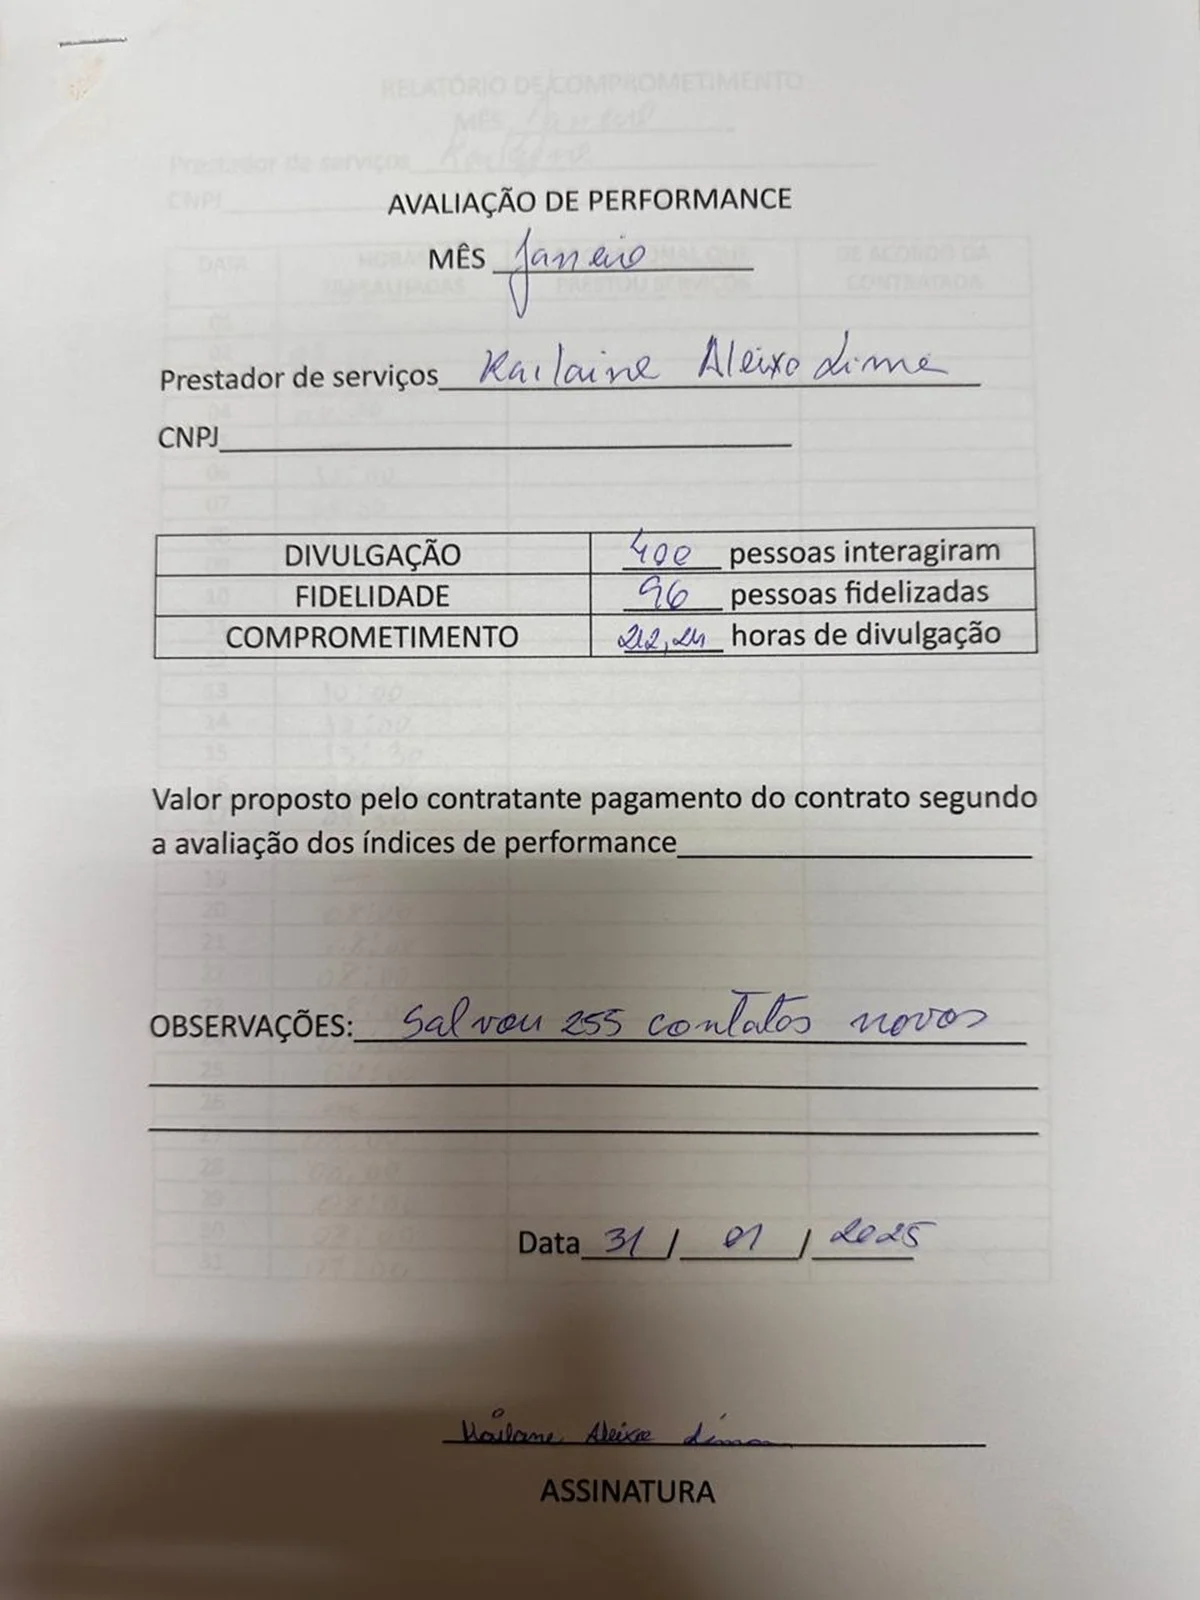 RELATÓRIO DE COMPROMETIMENTO
MÊS Janeiro
Prestador de serviços Kailaine
CNPJ
AVALIAÇÃO DE PERFORMANCE
MÊS Janeiro
Prestador de serviços Kailaine Aleixo Lima
CNPJ
DIVULGAÇÃO 400 pessoas interagiram
FIDELIDADE 96 pessoas fidelizadas
COMPROMETIMENTO 212,24 horas de divulgação
Valor proposto pelo contratante pagamento do contrato segundo
a avaliação dos índices de performance
OBSERVAÇÕES: Salvou 255 contatos novos
Data 31 / 01 / 2025
Kailane Aleixo Lima
ASSINATURA